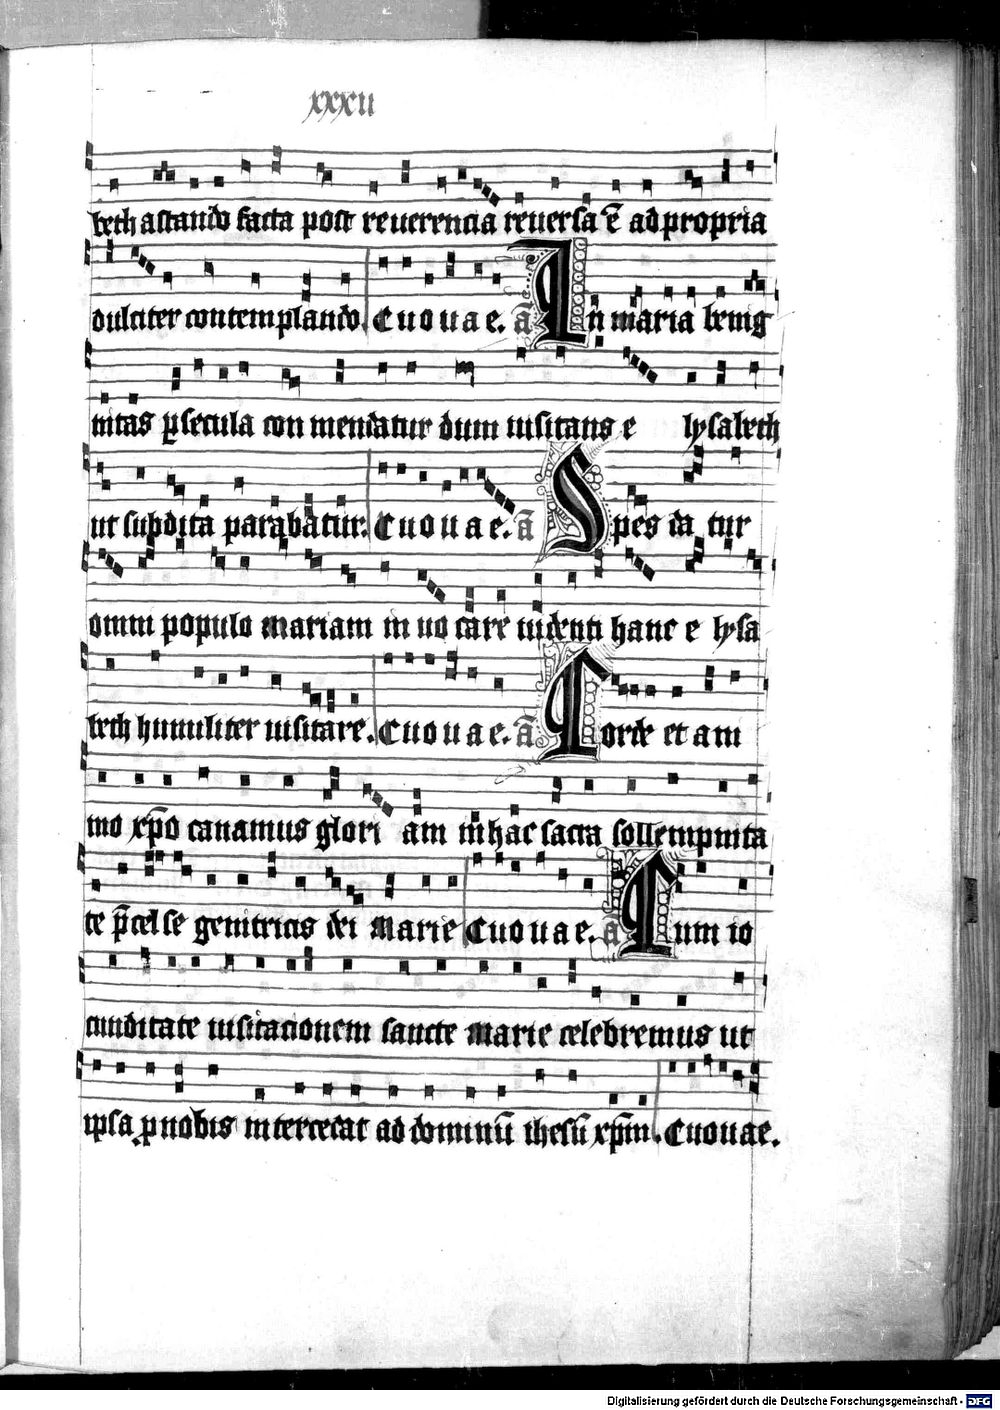 xxxii
beth astando facta post reuerencia reuersa ē ad propria
dulciter contemplando. Euouae. ā In maria benig
nitas ꝑ secula con mendatur dum uisitans e lysabeth
ut subdita parabatur. Euouae. ā Spes da tur
omni populo mariam in uo care uidenti hanc e lysa
beth humiliter uisitare. Euouae. ā Corde et ani
mo xp̄o canamus glori am in hac sacra sollempnita
te p̄cel se genitricis dei Marie Euouae. ā Cum io
cunditate uisitacionem sancte Marie celebremus ut
ipsa ꝓ nobis intercedat ad dominū ihesū xp̄m. Euouae.
Digitalisierung gefördert durch die Deutsche Forschungsgemeinschaft - DFG